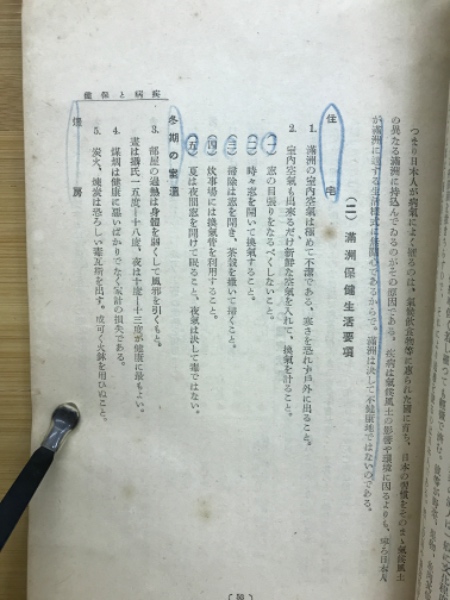 つまり日本人が病氣によく罹るのは、氣候飲食物等に惠られた國に育ち、日本の習慣をそのまゝ氣候風土
の異なる滿洲に持込んでゐるのがその原因である。疾病は氣候風土の影響や環境に因るよりも、寧ろ日本人
が滿洲に適する生活樣式に無關心であるからで、滿洲は決して不健康地ではないのである。
(二) 滿洲保健生活要項
住宅
1. 滿洲の室内空氣は極めて不潔である、寒さを恐れず戸外に出ること。
2. 室内空氣も出來るだけ新鮮な空氣を入れて、換氣を計ること。
(一) 窓の目張りをなるべくしないこと。
(二) 時々窓を開いて換氣すること。
(三) 掃除は窓を開き、茶殼を織いて掃くこと。
(四) 炊事場には換氣管を利用すること。
(五) 夏は夜間窓を開けて眠ること、夜氣は決して毒ではない。
冬期の室溫
3. 部屋の過熱は身體を弱くして風邪を引くもと。
晝は攝氏一五度―十八度、夜は十度―十三度が健康に最もよい。
4. 煤烟は健康に惡いばかりでなく家計の損失である。
煖房
5. 炭火、煉炭は恐ろしい毒瓦斯を出す。成可く火鉢を用ひぬこと。
疾病と保健